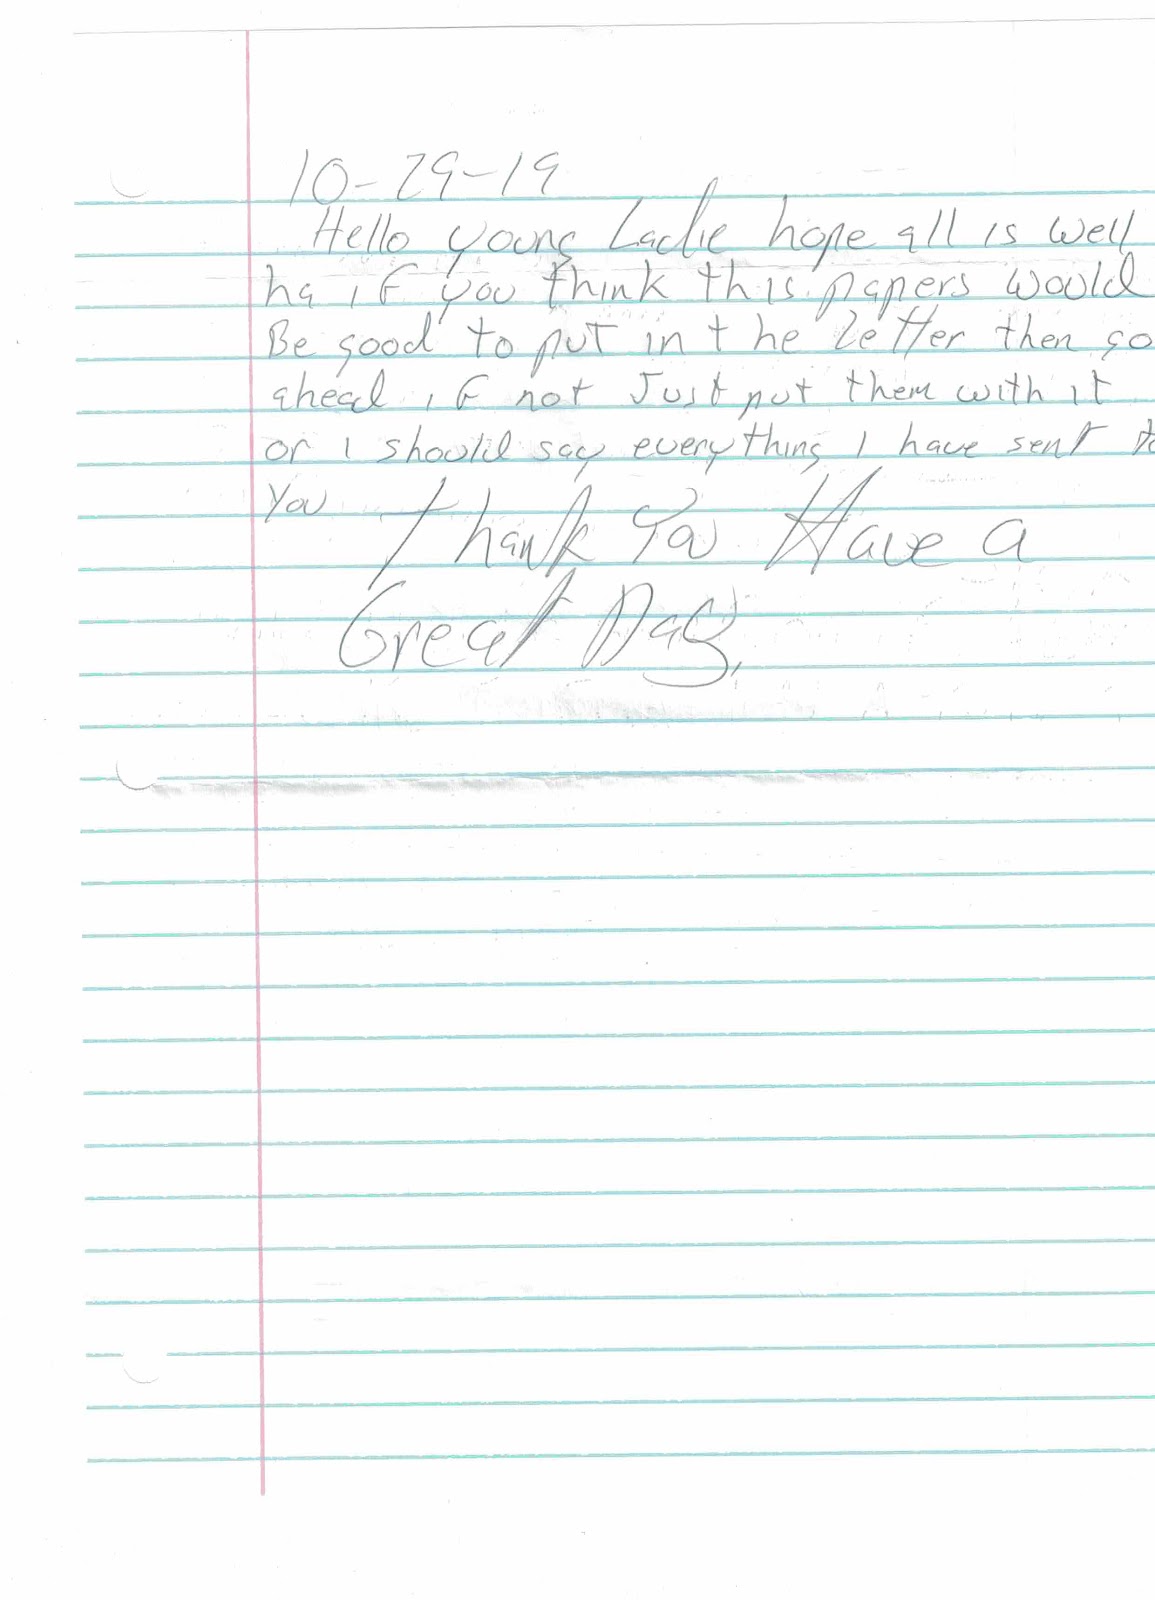 10-29-19
Hello young Ladie hope all is well
ha if you think this papers would
Be good to put in the letter then go
ahead if not Just put them with it
or I should say everything I have sent to
you
Thank You Have a
Great Day,